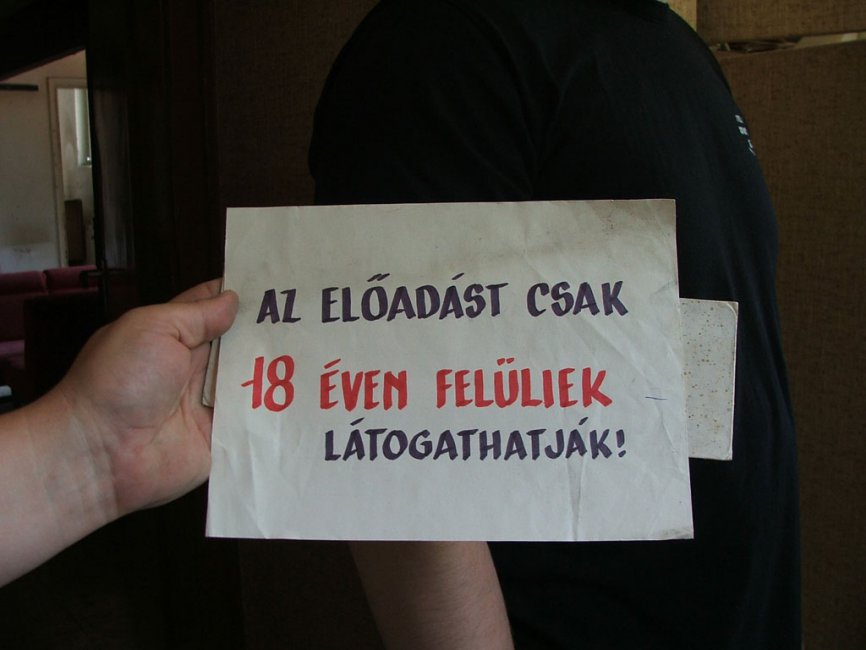 AZ ELŐADÁST CSAK
18 ÉVEN FELÜLIEK
LÁTOGATHATJÁK!